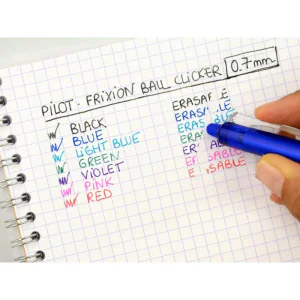 PILOT - FRIXION BALL CLICKER 0.7mm
BLACK
BLUE
LIGHT BLUE
GREEN
VIOLET
PINK
RED
ERASA LE
ERAS LE
ERAS BLE
ERA
ER AB
E SABLE
E SABLE